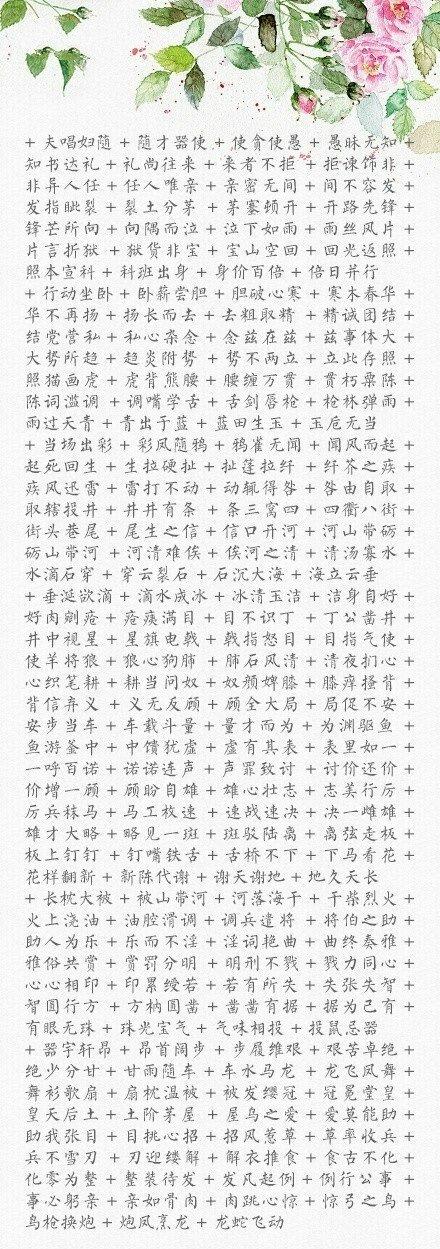 + 夫唱妇随 + 随才器使 + 使贪使愚 + 愚昧无知 +
知书达礼 + 礼尚往来 + 来者不拒 + 拒谏饰非 +
非异人任 + 任人唯亲 + 亲密无间 + 间不容发 +
发指眦裂 + 裂土分茅 + 茅塞顿开 + 开路先锋 +
锋芒所向 + 向隅而泣 + 泣下如雨 + 雨丝风片 +
片言折狱 + 狱货非宝 + 宝山空回 + 回光返照 +
照本宣科 + 科班出身 + 身价百倍 + 倍日并行
+ 行动坐卧 + 卧薪尝胆 + 胆破心寒 + 寒木春华 +
华不再扬 + 扬长而去 + 去粗取精 + 精诚团结 +
结党营私 + 私心杂念 + 念兹在兹 + 兹事体大 +
大势所趋 + 趋炎附势 + 势不两立 + 立此存照 +
照猫画虎 + 虎背熊腰 + 腰缠万贯 + 贯朽粟陈 +
陈词滥调 + 调嘴学舌 + 舌剑唇枪 + 枪林弹雨 +
雨过天青 + 青出于蓝 + 蓝田生玉 + 玉卮无当
+ 当场出彩 + 彩凤随鸦 + 鸦雀无闻 + 闻风而起 +
起死回生 + 生拉硬扯 + 扯篷拉纤 + 纤芥之疾 +
疾风迅雷 + 雷打不动 + 动辄得咎 + 咎由自取 +
取辖投井 + 井井有条 + 条三窝四 + 四衢八街 +
街头巷尾 + 尾生之信 + 信口开河 + 河山带砺 +
砺山带河 + 河清难俟 + 俟河之清 + 清汤寡水 +
水滴石穿 + 穿云裂石 + 石沉大海 + 海立云垂
+ 垂涎欲滴 + 滴水成冰 + 冰清玉洁 + 洁身自好 +
好肉剜疮 + 疮痍满目 + 目不识丁 + 丁公凿井 +
井中视星 + 星旗电戟 + 戟指怒目 + 目指气使 +
使羊将狼 + 狼心狗肺 + 肺石风清 + 清夜扪心 +
心织笔耕 + 耕当问奴 + 奴颜婢膝 + 膝痒搔背 +
背信弃义 + 义无反顾 + 顾全大局 + 局促不安 +
安步当车 + 车载斗量 + 量才而为 + 为渊驱鱼 +
鱼游釜中 + 中馈犹虚 + 虚有其表 + 表里如一 +
一呼百诺 + 诺诺连声 + 声罪致讨 + 讨价还价 +
价增一顾 + 顾盼自雄 + 雄心壮志 + 志美行厉 +
厉兵秣马 + 马工枚速 + 速战速决 + 决一雌雄 +
雄才大略 + 略见一斑 + 斑驳陆离 + 离弦走板 +
板上钉钉 + 钉嘴铁舌 + 舌桥不下 + 下马看花 +
花样翻新 + 新陈代谢 + 谢天谢地 + 地久天长
+ 长枕大被 + 被山带河 + 河落海干 + 干柴烈火 +
火上浇油 + 油腔滑调 + 调兵遣将 + 将伯之助 +
助人为乐 + 乐而不淫 + 淫词艳曲 + 曲终奏雅 +
雅俗共赏 + 赏罚分明 + 明刑不戮 + 戮力同心 +
心心相印 + 印累绶若 + 若有所失 + 失张失智 +
智圆行方 + 方枘圆凿 + 凿凿有据 + 据为己有 +
有眼无珠 + 珠光宝气 + 气味相投 + 投鼠忌器
+ 器宇轩昂 + 昂首阔步 + 步履维艰 + 艰苦卓绝 +
绝少分甘 + 甘雨随车 + 车水马龙 + 龙飞凤舞 +
舞衫歌扇 + 扇枕温被 + 被发缨冠 + 冠冕堂皇 +
皇天后土 + 土阶茅屋 + 屋乌之爱 + 爱莫能助 +
助我张目 + 目挑心招 + 招风惹草 + 草率收兵 +
兵不雪刃 + 刃迎缕解 + 解衣推食 + 食古不化 +
化零为整 + 整装待发 + 发凡起例 + 例行公事 +
事必躬亲 + 亲如骨肉 + 肉跳心惊 + 惊弓之鸟 +
鸟枪换炮 + 炮凤烹龙 + 龙蛇飞动